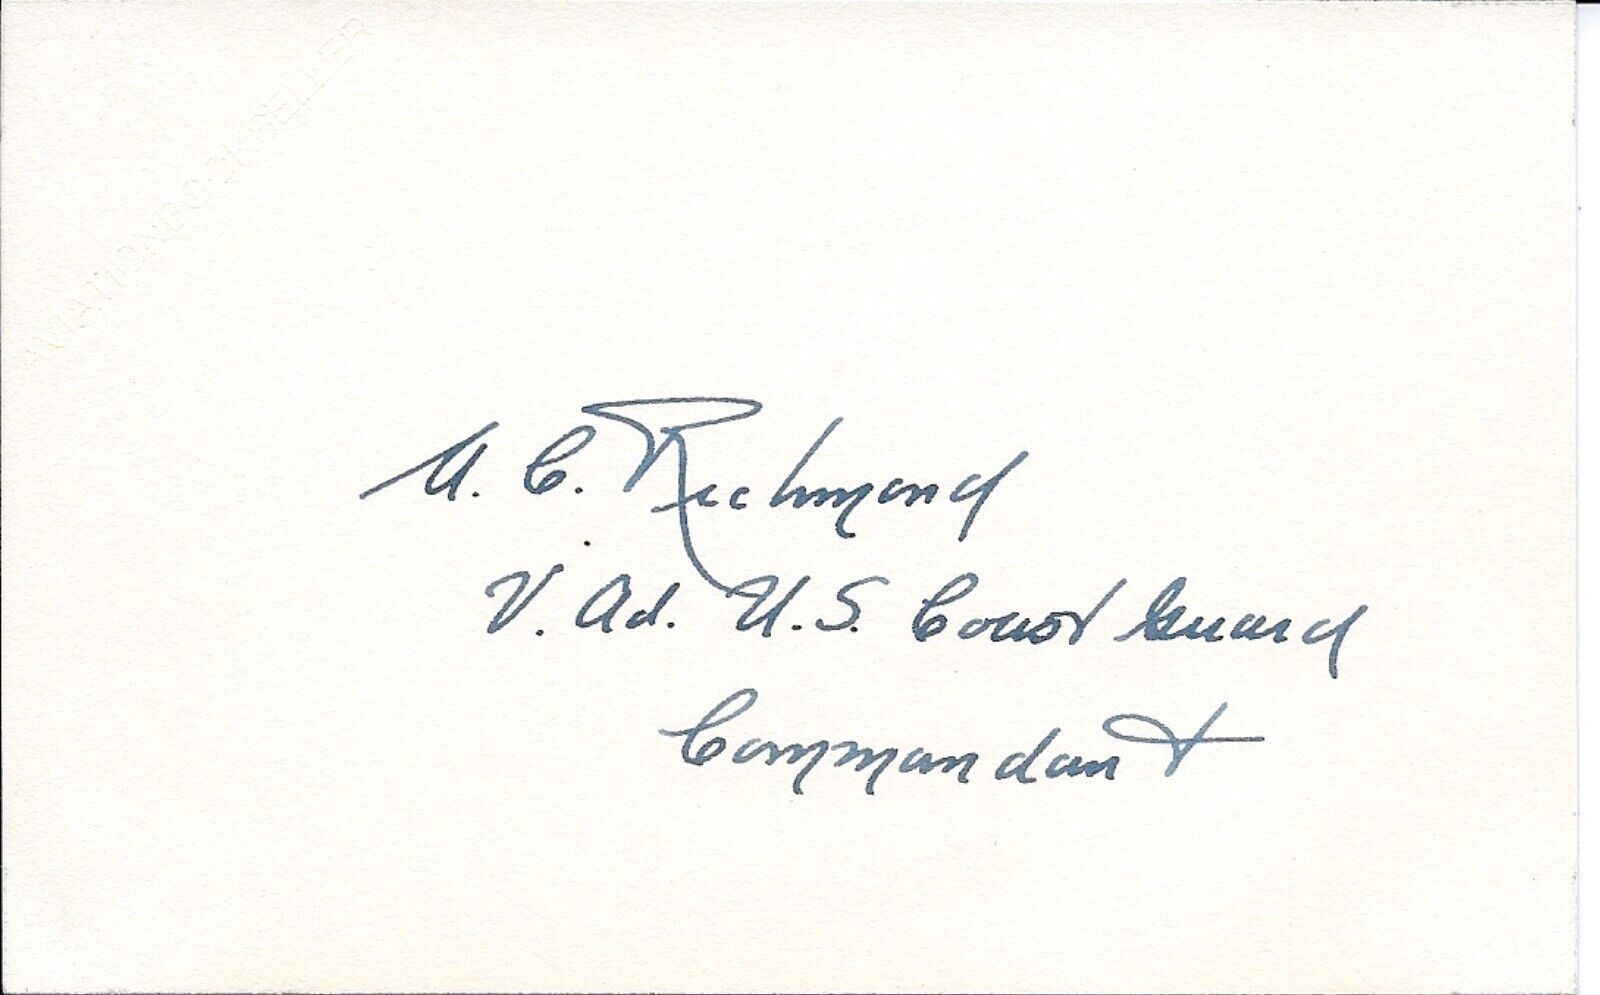 AVIATIONBOOKSELLER
A. C. Richmond
V. Ad. U.S. Coast Guard
Commandant